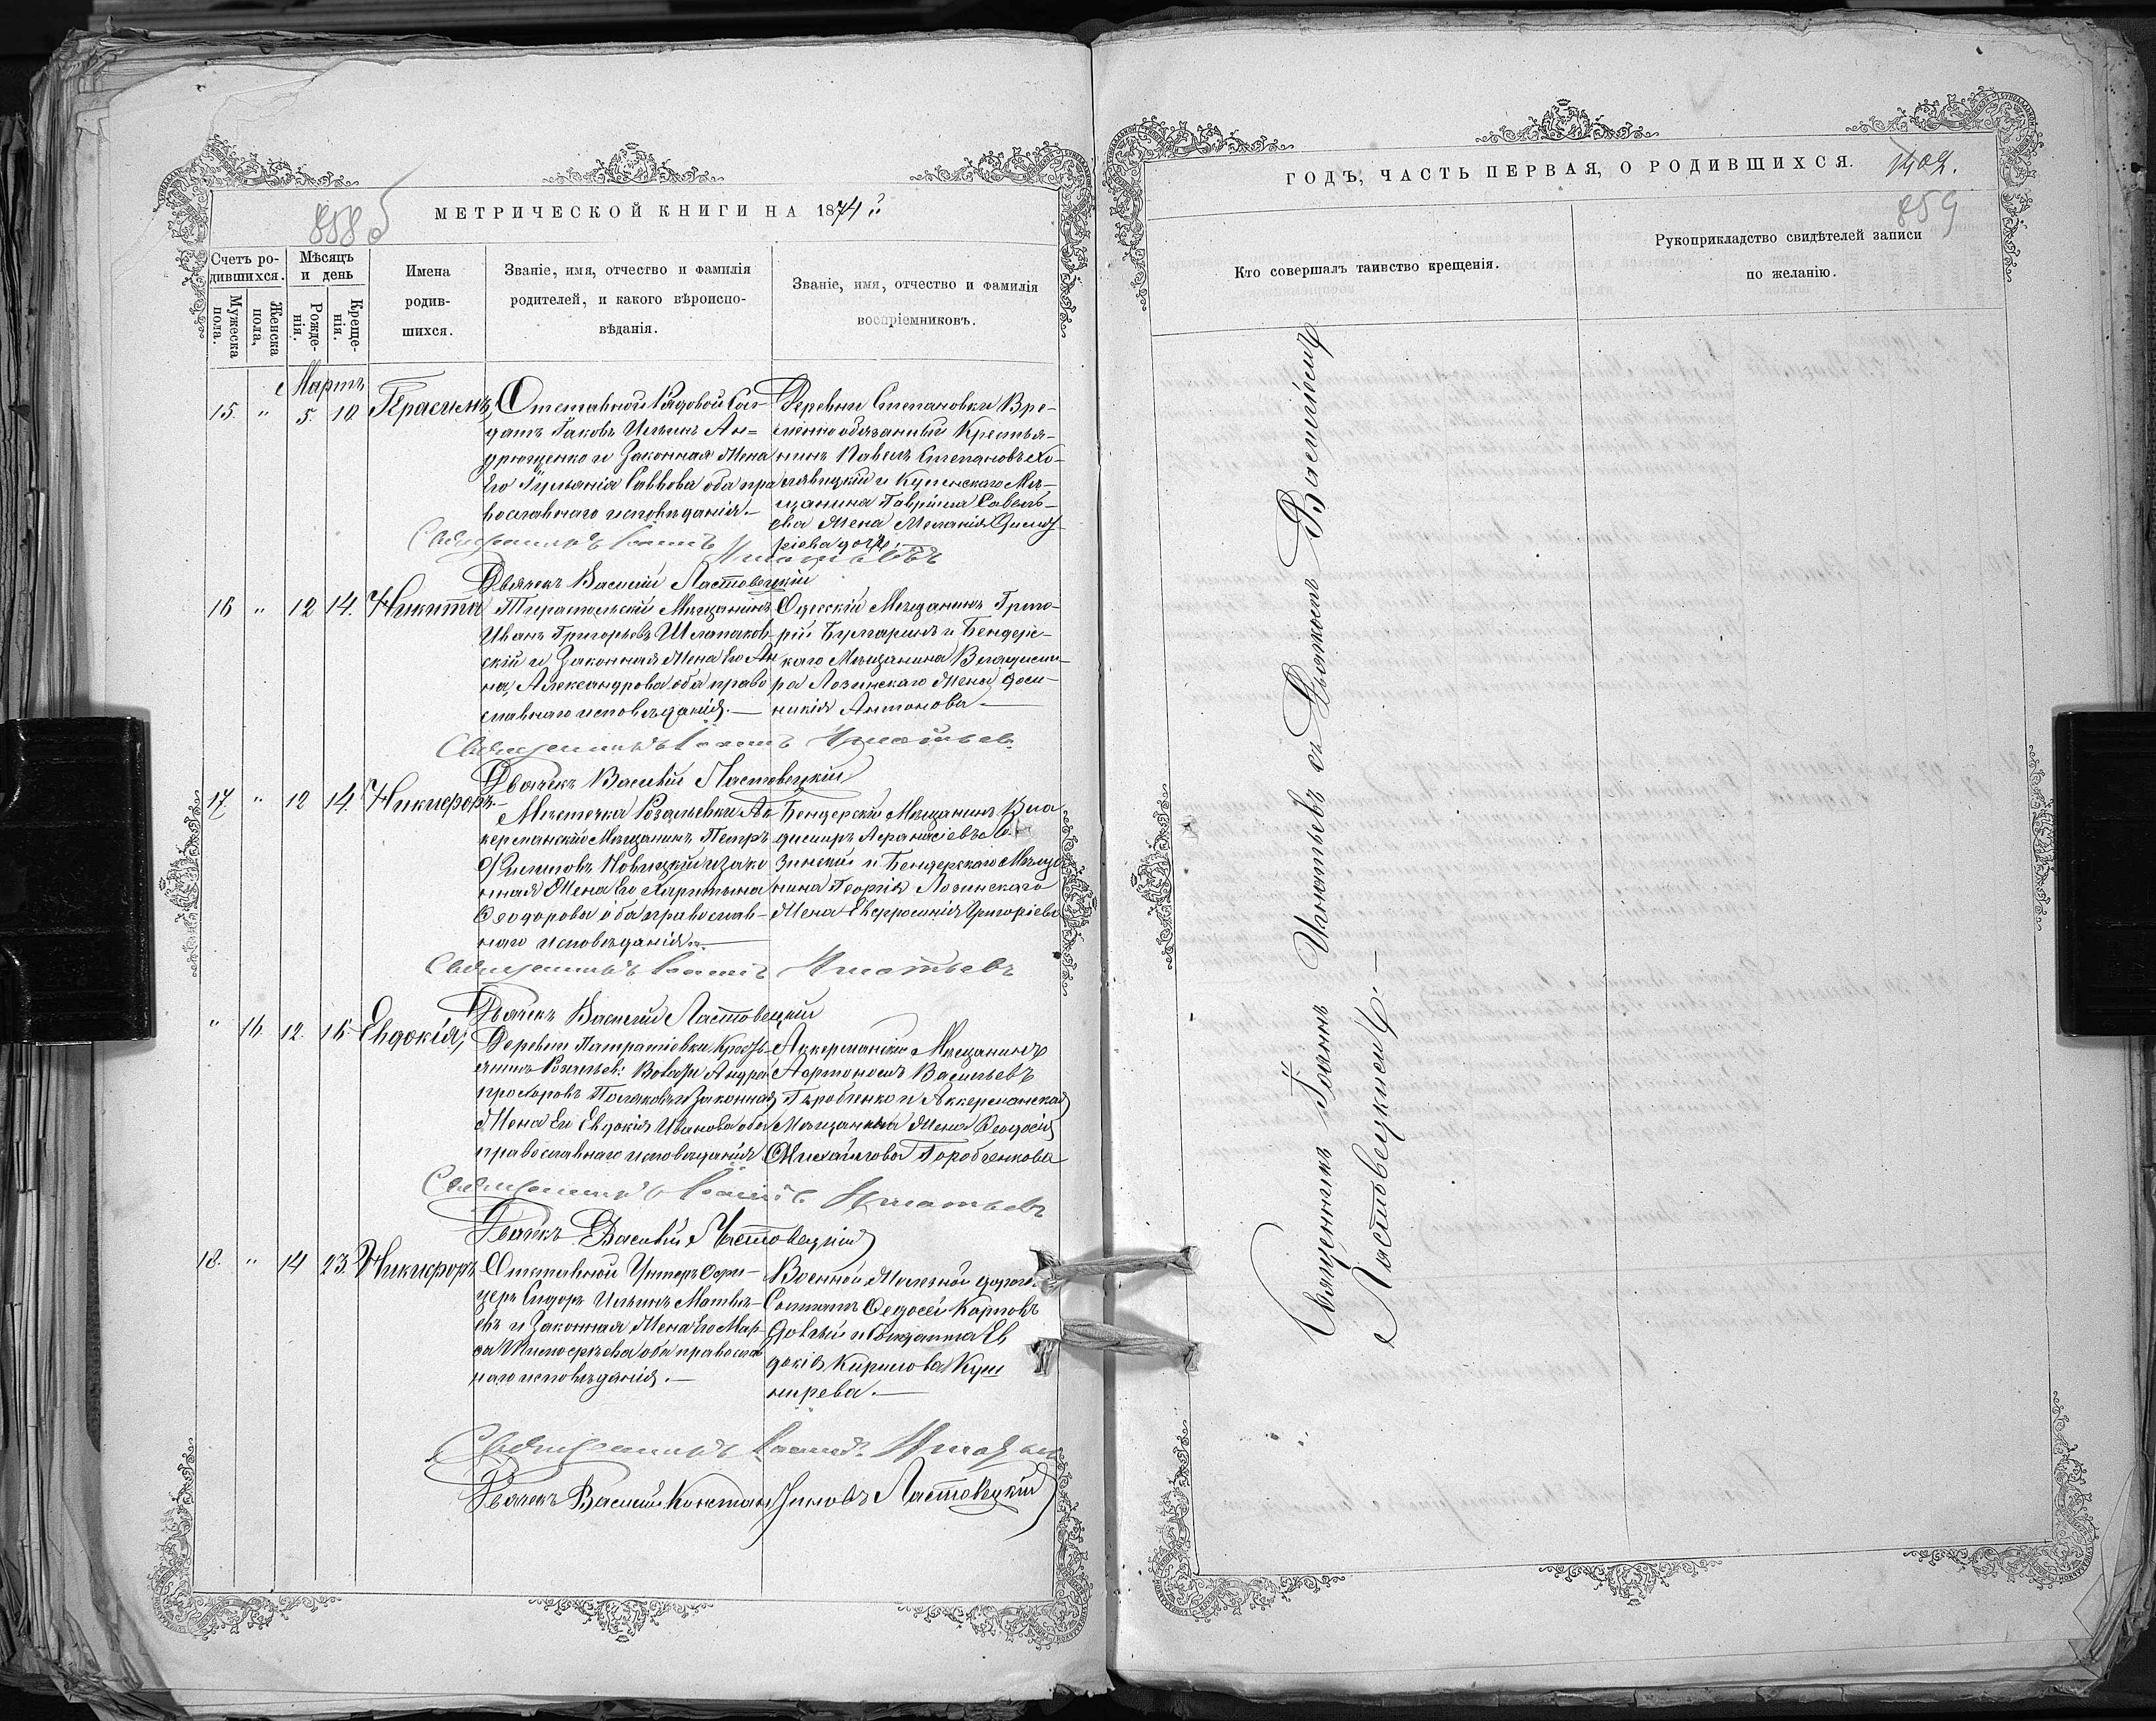 МЕТРИЧЕСКОЙ КНИГИ НА 1874
858 б
Счетъ родившихся.
Мужеска пола.
Женска пола,
Мѣсяцъ и день
Рожденія.
Крещенія.
Имена
родив-
шихся.
Званіе, имя, отчество и фамилія
родителей, и какого вѣроиспо-
вѣданія.
Званіе, имя, отчество и фамилія
воспріемниковъ.
Мартъ
15. " 5. 10 Герасимъ,
Отставной Рядовой Сол-
датъ Іаковъ Ильинъ Ан=
дрющенко и Законная Жена
Его Іуліанія Саввова оба пра
вославнаго исповѣданія.—
Деревни Степановки Вре-
меннообязанный Крестья-
нинъ Павелъ Степановъ
и Мѣ-
щанина Гавріила Савель-
ева Жена Меланія
дочь.
Священникъ Іоаннъ Игнатьевъ
Дьячекъ Василій Ластовецкій
16 " 12 14. Никита
Тираспольскій Мѣщанинъ
Иванъ Григорьевъ Шлапаков-
скій и Законная Жена Его Ан
на Александрова оба право
славнаго исповѣданія.—
Одесскій Мѣщанинъ Григо-
рій Булгаринъ и Бендерс-
каго Мѣщанина Владими-
ра Лозинскаго Жена Доми-
никія Антонова—
Священникъ Іоаннъ Игнатьев
Дьячекъ Василій Ластовецкій
17. " 12 14 Никифоръ.
Мѣстечка Розальевки Ак-
керманскій Мѣщанинъ Петръ
Филиповъ Новицкій и зако
нная Жена Его Харитина
Ѳеодорова оба православ-
наго исповѣданія.—
Бендерскій Мѣщанинъ Вла
димиръ Афанасіевъ Ло-
зинскій и Бендерскаго Мѣща
нина Георгія Лозинскаго
Жена Евфросинія Григоріева
Священникъ Іоаннъ Игнатьевъ
Дьячекъ Василій Ластовецкій
" 16. 12. 16 Евдокія,
Деревни Петр
Андрей
Прохоровъ Поляковъ и Законная
Жена Ево Евдокія Иванова оба
православнаго исповѣданія
Аккерманскій Мѣщанинъ
Артономъ Васильевъ
Горобченко и Аккерманская
Мѣщанина Жена Ѳеодосія
Михайлова Горобченкова
Священникъ Іоаннъ Игнатьевъ
Дьячекъ Василій Ластовецкій
18. " 14 23. Никифоръ
Отставной Унтеръ Офи-
церъ Сидоръ Ильинъ Матвѣ-
евъ и Законная Жена Его Мар-
ѳа Тимофеева оба православ
наго исповѣданія.—
Военной Желѣзной дороги
Солтатъ Ѳедосей Карповъ
Довгій и Солдатка Ев
докія Кирилова Куш
нирева.—
Священникъ Іоаннъ Игнатьевъ
Дьячекъ Василій Константиновъ Ластовецкій
ГОДЪ, ЧАСТЬ ПЕРВАЯ, О РОДИВШИХСЯ.
1402.
859
Кто совершалъ таинство крещенія.
Рукоприкладство свидѣтелей записи
по желанію.
Священникъ Іоаннъ Игнатьевъ съ Дьячкомъ Василіемъ
Ластовецкимъ.—